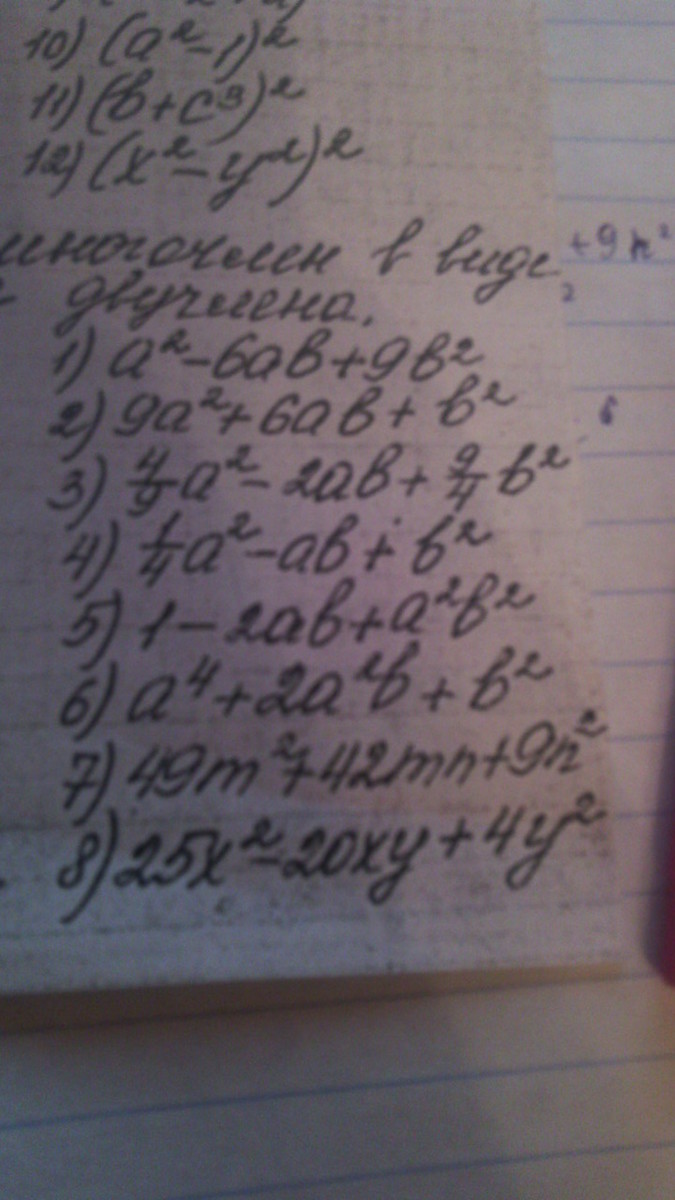 10) (a²-1)²
11) (b+c³)²
12) (x²-y²)²
многочлен в виде
двучлена.
1) a²-6ab+9b²
2) 9a²+6ab+b²
3) 4/9a²-2ab+9/4b²
4) 1/4a²-ab+b²
5) 1-2ab+a²b²
6) a⁴+2a²b+b²
7) 49m²+42mn+9n²
8) 25x²-20xy+4y²
+9n²